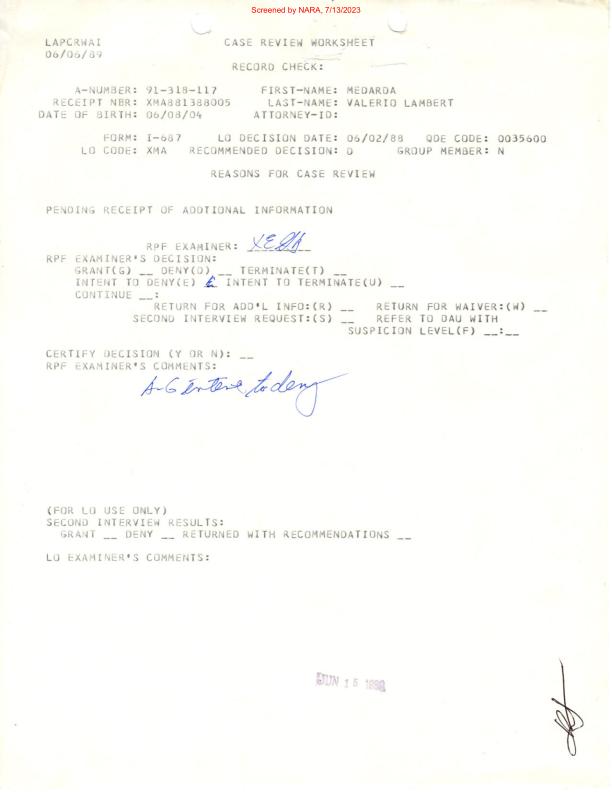 Screened by NARA, 7/13/2023
LAPCRWAI CASE REVIEW WORKSHEET
06/06/89
RECORD CHECK:
A-NUMBER: 91-318-117 FIRST-NAME: MEDARDA
RECEIPT NBR: XMA881388005 LAST-NAME: VALERIO LAMBERT
DATE OF BIRTH: 06/08/04 ATTORNEY-ID:
FORM: I-687 LO DECISION DATE: 06/02/88 QDE CODE: 0035600
LO CODE: XMA RECOMMENDED DECISION: D GROUP MEMBER: N
REASONS FOR CASE REVIEW
PENDING RECEIPT OF ADDTIONAL INFORMATION
RPF EXAMINER:
RPF EXAMINER'S DECISION:
GRANT(G) __ DENY(D) __ TERMINATE(T) __
INTENT TO DENY(E) E INTENT TO TERMINATE(U) __
CONTINUE __:
RETURN FOR ADD'L INFO:(R) __ RETURN FOR WAIVER:(W) __
SECOND INTERVIEW REQUEST:(S) __ REFER TO DAU WITH
SUSPICION LEVEL(F) __:__
CERTIFY DECISION (Y OR N): __
RPF EXAMINER'S COMMENTS:
A-6 to deny
(FOR LO USE ONLY)
SECOND INTERVIEW RESULTS:
GRANT __ DENY __ RETURNED WITH RECOMMENDATIONS __
LO EXAMINER'S COMMENTS:
JUN 15